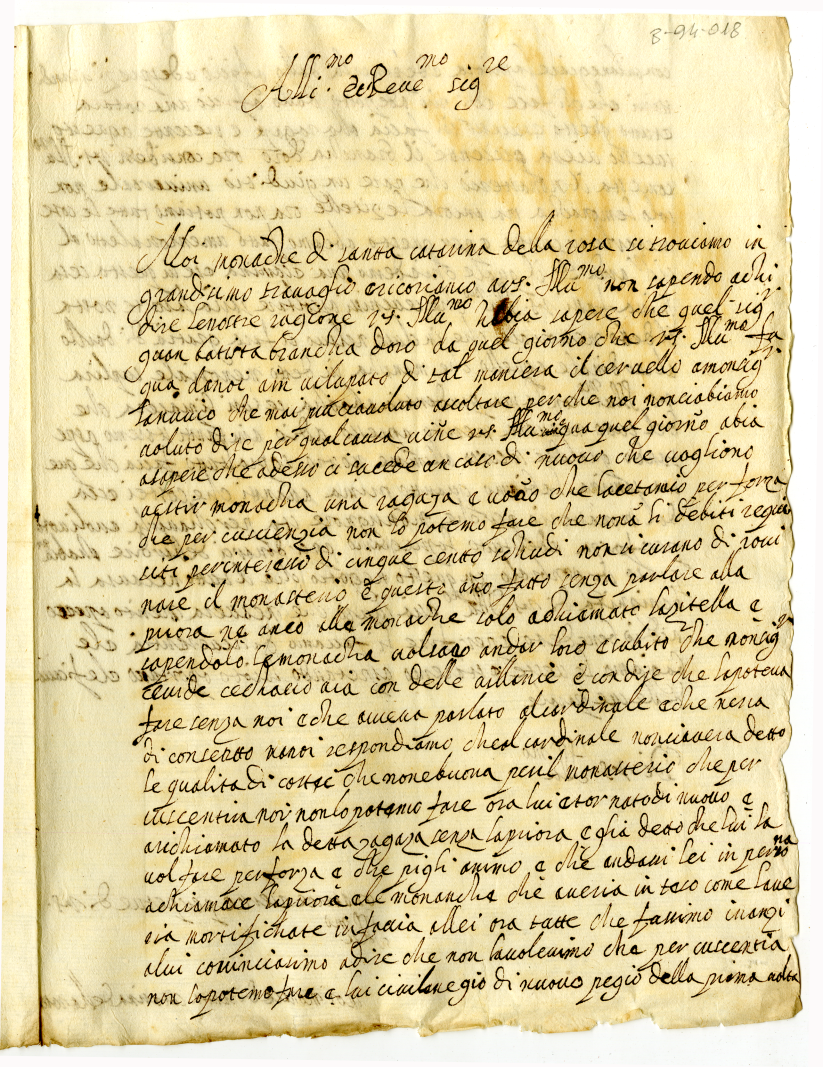 B-94-018
Alli.mo et Reve.mo sig.re
Noi monache di santta catarina della rosa si troviamo in
grandisimo travaglio e ricoriamo a vs. Illu.mo non sapendo a chi
dire le nostre ragione vs. Illu.mo habia sapere che quel sig.r
guan batista brancha doro da quel giorno che vs. Illu.mo fu
qua da noi a in vilupato di tal maniera il cervello a monsig.r
che mai piu ci a voluto ascoltare perche noi non ci abiamo
voluto dire per qual causa vine vs. Illu.mo qua quel giorno abia
a sapere che adesso ci sucede un caso di nuovo che vogliono
vestir monacha una ragaza e vono che lacetamo per forza
che per cuscienzia non lo potemo fare che non a li debiti requi
siti per interesse di cinque centto schudi non si curano di rovi
nare il monasterio e questo ano fatto senza parlare alla
priora ne anco alle monache solo a chiamato la zitella e
sapendolo le monacha volsero andar loro e subito che monsig.r
ce vide ce chacio via con delle villanie e con dire che la poteva
fare senza noi e che aveva parlato al cardinale e che nera
di consentto ma noi respondiamo che al cardinale non ci avera detto
le qualita di costei che none buona per il monasterio che per
cuscentia noi non lo potemo fare ora lui e tornato di nuovo e
a richiamato la detta ragaza senza la priora e gli a detto che lui la
vol fare per forza e che pigli animo e che andavi lei in persona
a chiamare la priora e le monache che averia in teso come lave
ria mortifichate in facia allei ora tutte che fussimo inanzi
a lui cominciassimo a dire che non la volevimo che per cuscentia
non lo potemo fare e lui ci vilanegio di nuovo pegio della prima volta